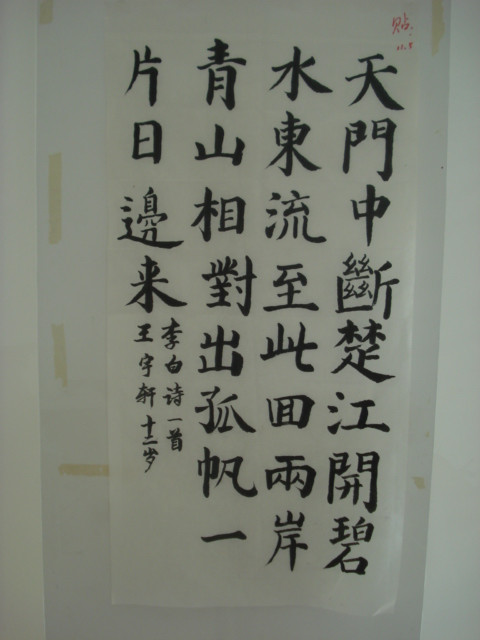 天門中斷楚江開碧
水東流至此回兩岸
青山相對出孤帆一
片日邊来
李白诗一首
王宇轩十二岁
贴